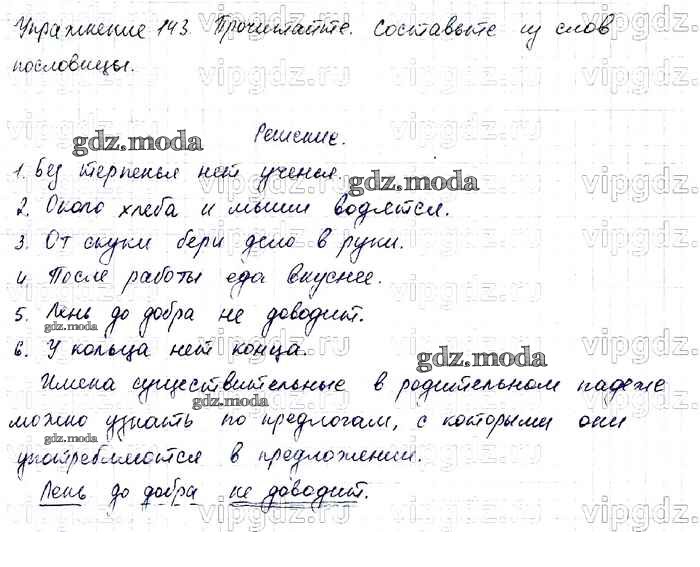 Упражнение 143. Прочитайте. Составьте из слов
пословицы.
Решение.
gdz.moda
1. Без терпенья нет ученья.
gdz.moda
2. Около хлеба и мыши водятся.
3. От скуки бери дело в руки.
4. После работы еда вкуснее.
5. Лень до добра не доводит.
gdz.moda
6. У кольца нет конца.
gdz.moda
Имена существительные в родительном падеже
gdz.moda
можно узнать по предлогам, с которыми они
gdz.moda
употребляются в предложении.
Лень до добра не доводит.
vipgdz.ru